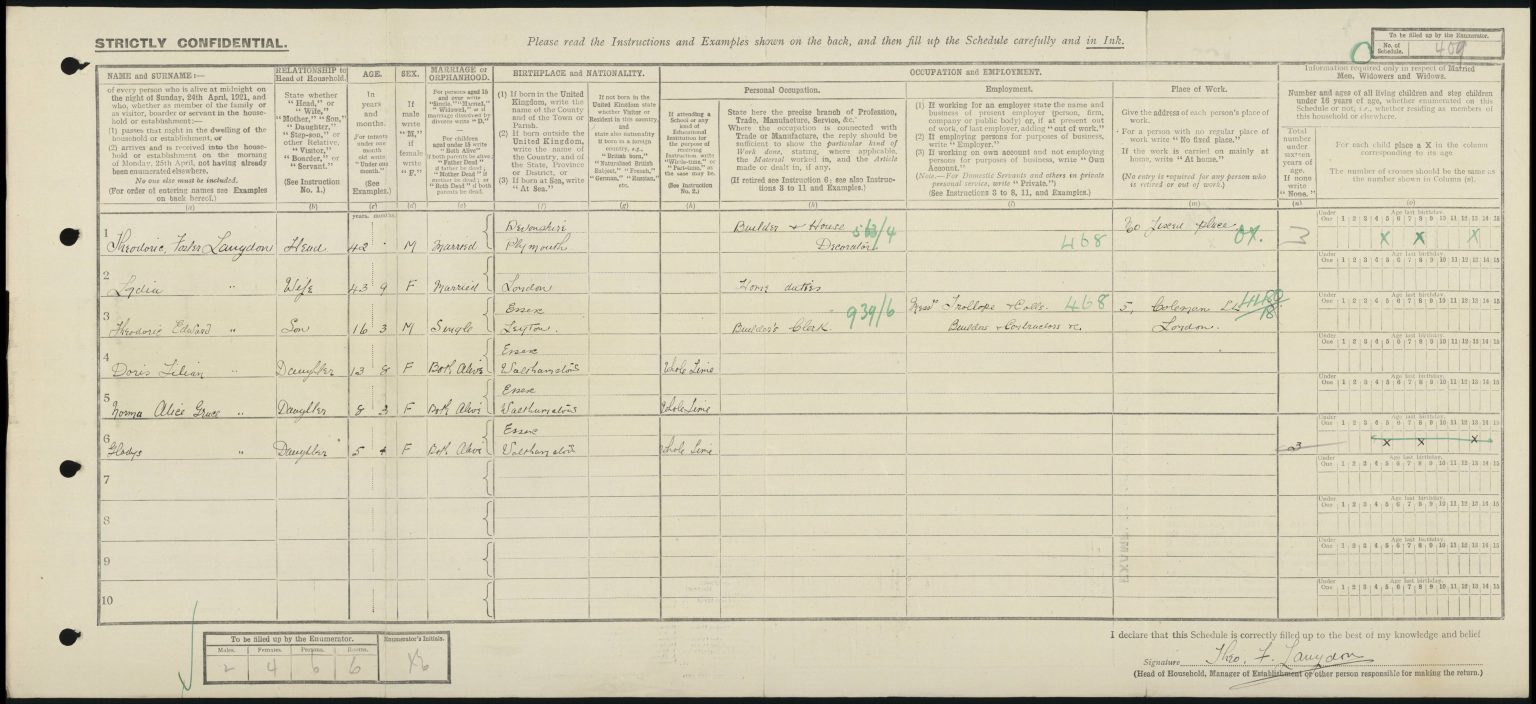 STRICTLY CONFIDENTIAL.
Please read the Instructions and Examples shown on the back, and then fill up the Schedule carefully and in Ink.
To be filled up by the Enumerator.
No. of Schedule. 409
NAME and SURNAME:—
of every person who is alive at midnight on
the night of Sunday, 24th April, 1921, and
who, whether as member of the family or
as visitor, boarder or servant in the house-
hold or establishment:—
(1) passes that night in the dwelling of the
household or establishment, or
(2) arrives and is received into the house-
hold or establishment on the morning
of Monday, 25th April, not having already
been enumerated elsewhere.
No one else must be included.
(For order of entering names see Examples
on back hereof.)
(a)
RELATIONSHIP to
Head of Household.
State whether
"Head," or
"Wife,"
"Mother," "Son,"
"Daughter,"
"Step-son," or
other Relative,
"Visitor,"
"Boarder," or
"Servant."
(See Instruction
No. 1.)
(b)
AGE.
In
years
and
months.
For infants
under one
month
old write
"Under one
month."
(See
Examples.)
(c)
years. months.
SEX.
If
male
write
"M,"
if
female
write
"F."
(d)
MARRIAGE or
ORPHANHOOD.
For persons aged 15
and over write
"Single," "Married,"
"Widowed," or if
marriage dissolved by
divorce write "D."
For children
aged under 15 write
"Both Alive"
if both parents be alive
"Father Dead"
if father be dead;
"Mother Dead" if
mother be dead;
"Both Dead" if both
parents be dead.
(e)
BIRTHPLACE and NATIONALITY.
(1) If born in the United
Kingdom, write the
name of the County
and of the Town or
Parish.
(2) If born outside the
United Kingdom,
write the name of
the Country, and of
the State, Province
or District, or
(3) If born at Sea, write
"At Sea."
(f)
If not born in the
United Kingdom state
whether Visitor or
Resident in this country,
and
state also nationality
if born in a foreign
country, e.g.,
"British born,"
"Naturalised British
Subject," "French,"
"German," "Russian,"
etc.
(g)
OCCUPATION and EMPLOYMENT.
Personal Occupation.
If attending a
School or any
kind of
Educational
Institution for
the purpose of
receiving
Instruction, write
"Whole-time," or
"Part-time," as
the case may be.
(See Instruction
No. 2.)
(h)
State here the precise branch of Profession,
Trade, Manufacture, Service, &c.
Where the occupation is connected with
Trade or Manufacture, the reply should be
sufficient to show the particular kind of
Work done, stating, where applicable,
the Material worked in, and the Article
made or dealt in, if any.
(If retired see Instruction 6; see also Instruc-
tions 3 to 11 and Examples.)
(k)
Employment.
(1) If working for an employer state the name and
business of present employer (person, firm,
company or public body) or, if at present out
of work, of last employer, adding "out of work."
(2) If employing persons for purposes of business,
write "Employer."
(3) If working on own account and not employing
persons for purposes of business, write "Own
Account."
(Note.—For Domestic Servants and others in private
personal service, write "Private.")
(See Instructions 3 to 8, 11, and Examples.)
(l)
Place of Work.
Give the address of each person's place of
work.
For a person with no regular place of
work write "No fixed place."
If the work is carried on mainly at
home, write "At home."
(No entry is required for any person who
is retired or out of work.)
(m)
Information required only in respect of Married
Men, Widowers and Widows.
Number and ages of all living children and step children
under 16 years of age, whether enumerated on this
Schedule or not, i.e., whether residing as members of
this household or elsewhere.
Total
number
under
sixteen
years of
age.
If none
write
"None."
(n)
For each child place a X in the column
corresponding to its age
The number of crosses should be the same as
the number shown in Column (n).
(o)
Under One Age last birthday. 1 2 3 4 5 6 7 8 9 10 11 12 13 14 15
1 Theodoric Foster Langdon Head 42 - M Married Devonshire Plymouth Builder & House Decorator 563/4 468 No fixed place OX. 3 X X X
2 Lydia " Wife 43 9 F Married London Home duties
3 Theodoric Edward " Son 16 3 M Single Essex Leyton. Builder's Clerk 939/6 Messrs Trollope & Colls. 468 Builders & Contractors &c. 5, Coleman St London.
4 Doris Lilian " Daughter 13 8 F Both Alive Essex Walthamstow Whole Time
5 Norma Alice Grace " Daughter 8 3 F Both Alive Essex Walthamstow Whole Time
6 Gladys " Daughter 5 4 F Both Alive Essex Walthamstow Whole Time 3 X X X
7
8
9
10
To be filled up by the Enumerator.
Males. Females. Persons. Rooms.
2 4 6 6
Enumerator's Initials.
I declare that this Schedule is correctly filled up to the best of my knowledge and belief
Signature Theo. F. Langdon
(Head of Household, Manager of Establishment or other person responsible for making the return.)